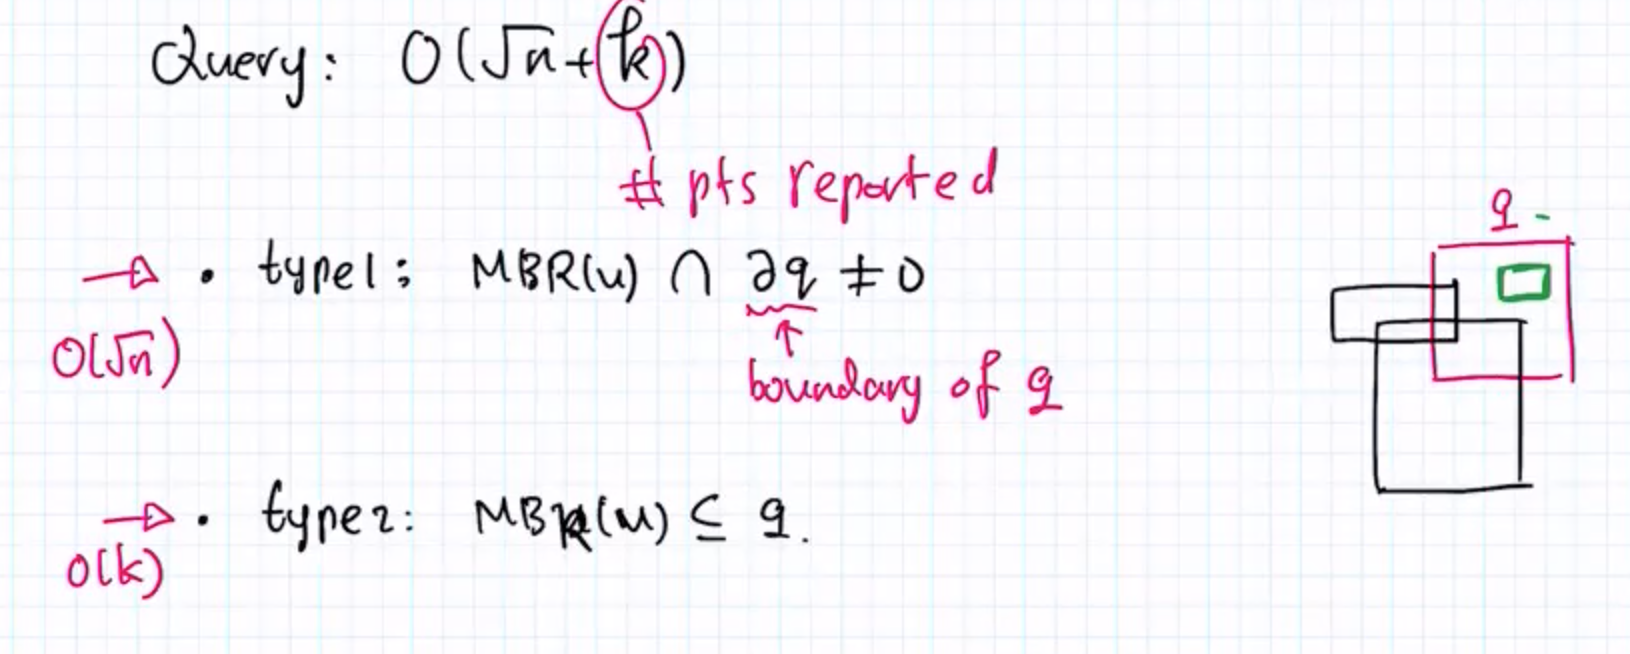 Query: O(√n+k)
# pts reported
q
→ • type1: MBR(u) ∩ ∂q ≠ 0
O(√n)
↑
boundary of q
→ • type2: MBR(u) ⊆ q.
O(k)